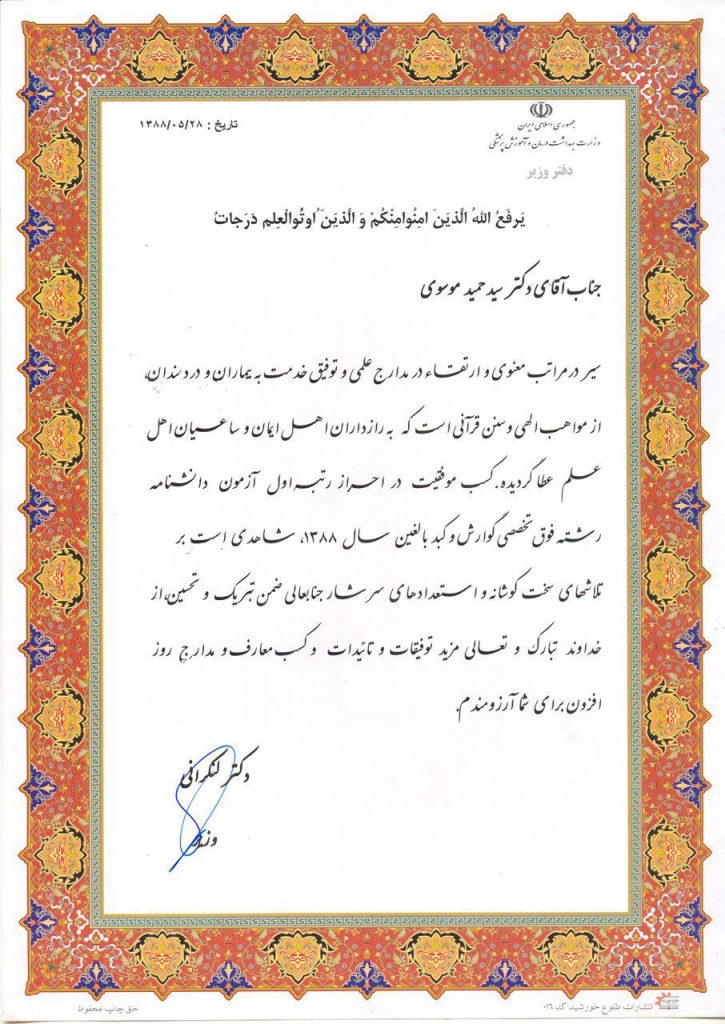 جمهوری اسلامی ایران
وزارت بهداشت درمان و آموزش پزشکی
دفتر وزیر
تاریخ : ۱۳۸۸/۰۵/۲۸
یَرفَعُ اللهُ الَّذینَ امِنُوامِنْکُمْ وَ الَّذینَ اوتُوالْعِلم دَرَجاتْ
جناب آقای دکتر سید حمید موسوی
سیر در مراتب معنوی و ارتقاء در مدارج علمی و توفیق خدمت به بیماران و دردمندان،
از مواهب الهی و سنن قرآنی است که به رازداران اهل ایمان و ساعیان اهل
علم عطا گردیده. کسب موفقیت در احراز رتبه اول آزمون دانشنامه
رشته فوق تخصصی گوارش و کبد بالغین سال ۱۳۸۸، شاهدی است بر
تلاشهای سخت کوشانه و استعدادهای سرشار جنابعالی ضمن تبریک و تحسین، از
خداوند تبارک و تعالی مزید توفیقات و تائیدات و کسب معارف و مدارج روز
افزون برای شما آرزومندم.
دکتر لنکرانی
وزیر
انتشارات طلوع خورشید کد ۰۱۶
حق چاپ محفوظ